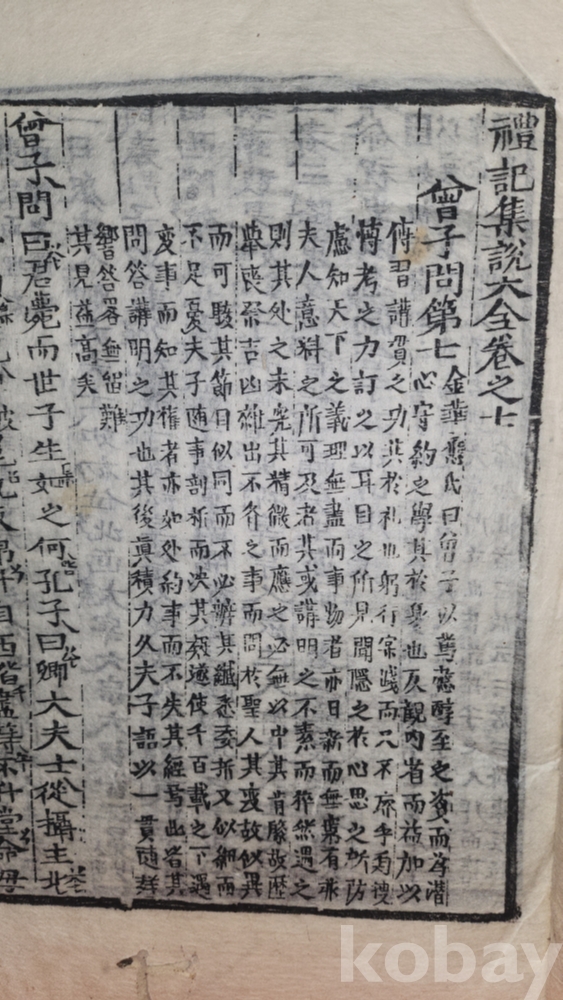 禮記集說大全卷之七
曾子問第七
金華應氏曰曾子以篤慤醇至之資而潛
心守約之學其於身也反觀內省而益加以
傳習講貫之功其於礼也躬行實踐而又不廢乎旁搜
博考之力訂之以耳目之所見聞隱之於心思之所防
慮知天下之義理無盡而事物者亦日新而無窮有非
夫人意料之所可及者其或講明之不素而猝然遇之
則其處之未究其精微而應之必無以中其肯綮故歷
舉喪祭吉凶雜出不齊之事而問於聖人其變故似異
而可駭其節目似同而不必辨其纖悉委折又似細而
不足憂夫子随事剖析而決其疑遂使千百載之下遇
変事而知其權者亦如处約事而不失其經焉此皆其
問答講明之功也其後眞積力久夫子語以一貫随
響答畧無留難
其見益高矣
曾子問曰君薨而世子生如之何孔子曰卿大夫士從攝主北
升自西階盡等不升堂命毋
kobay